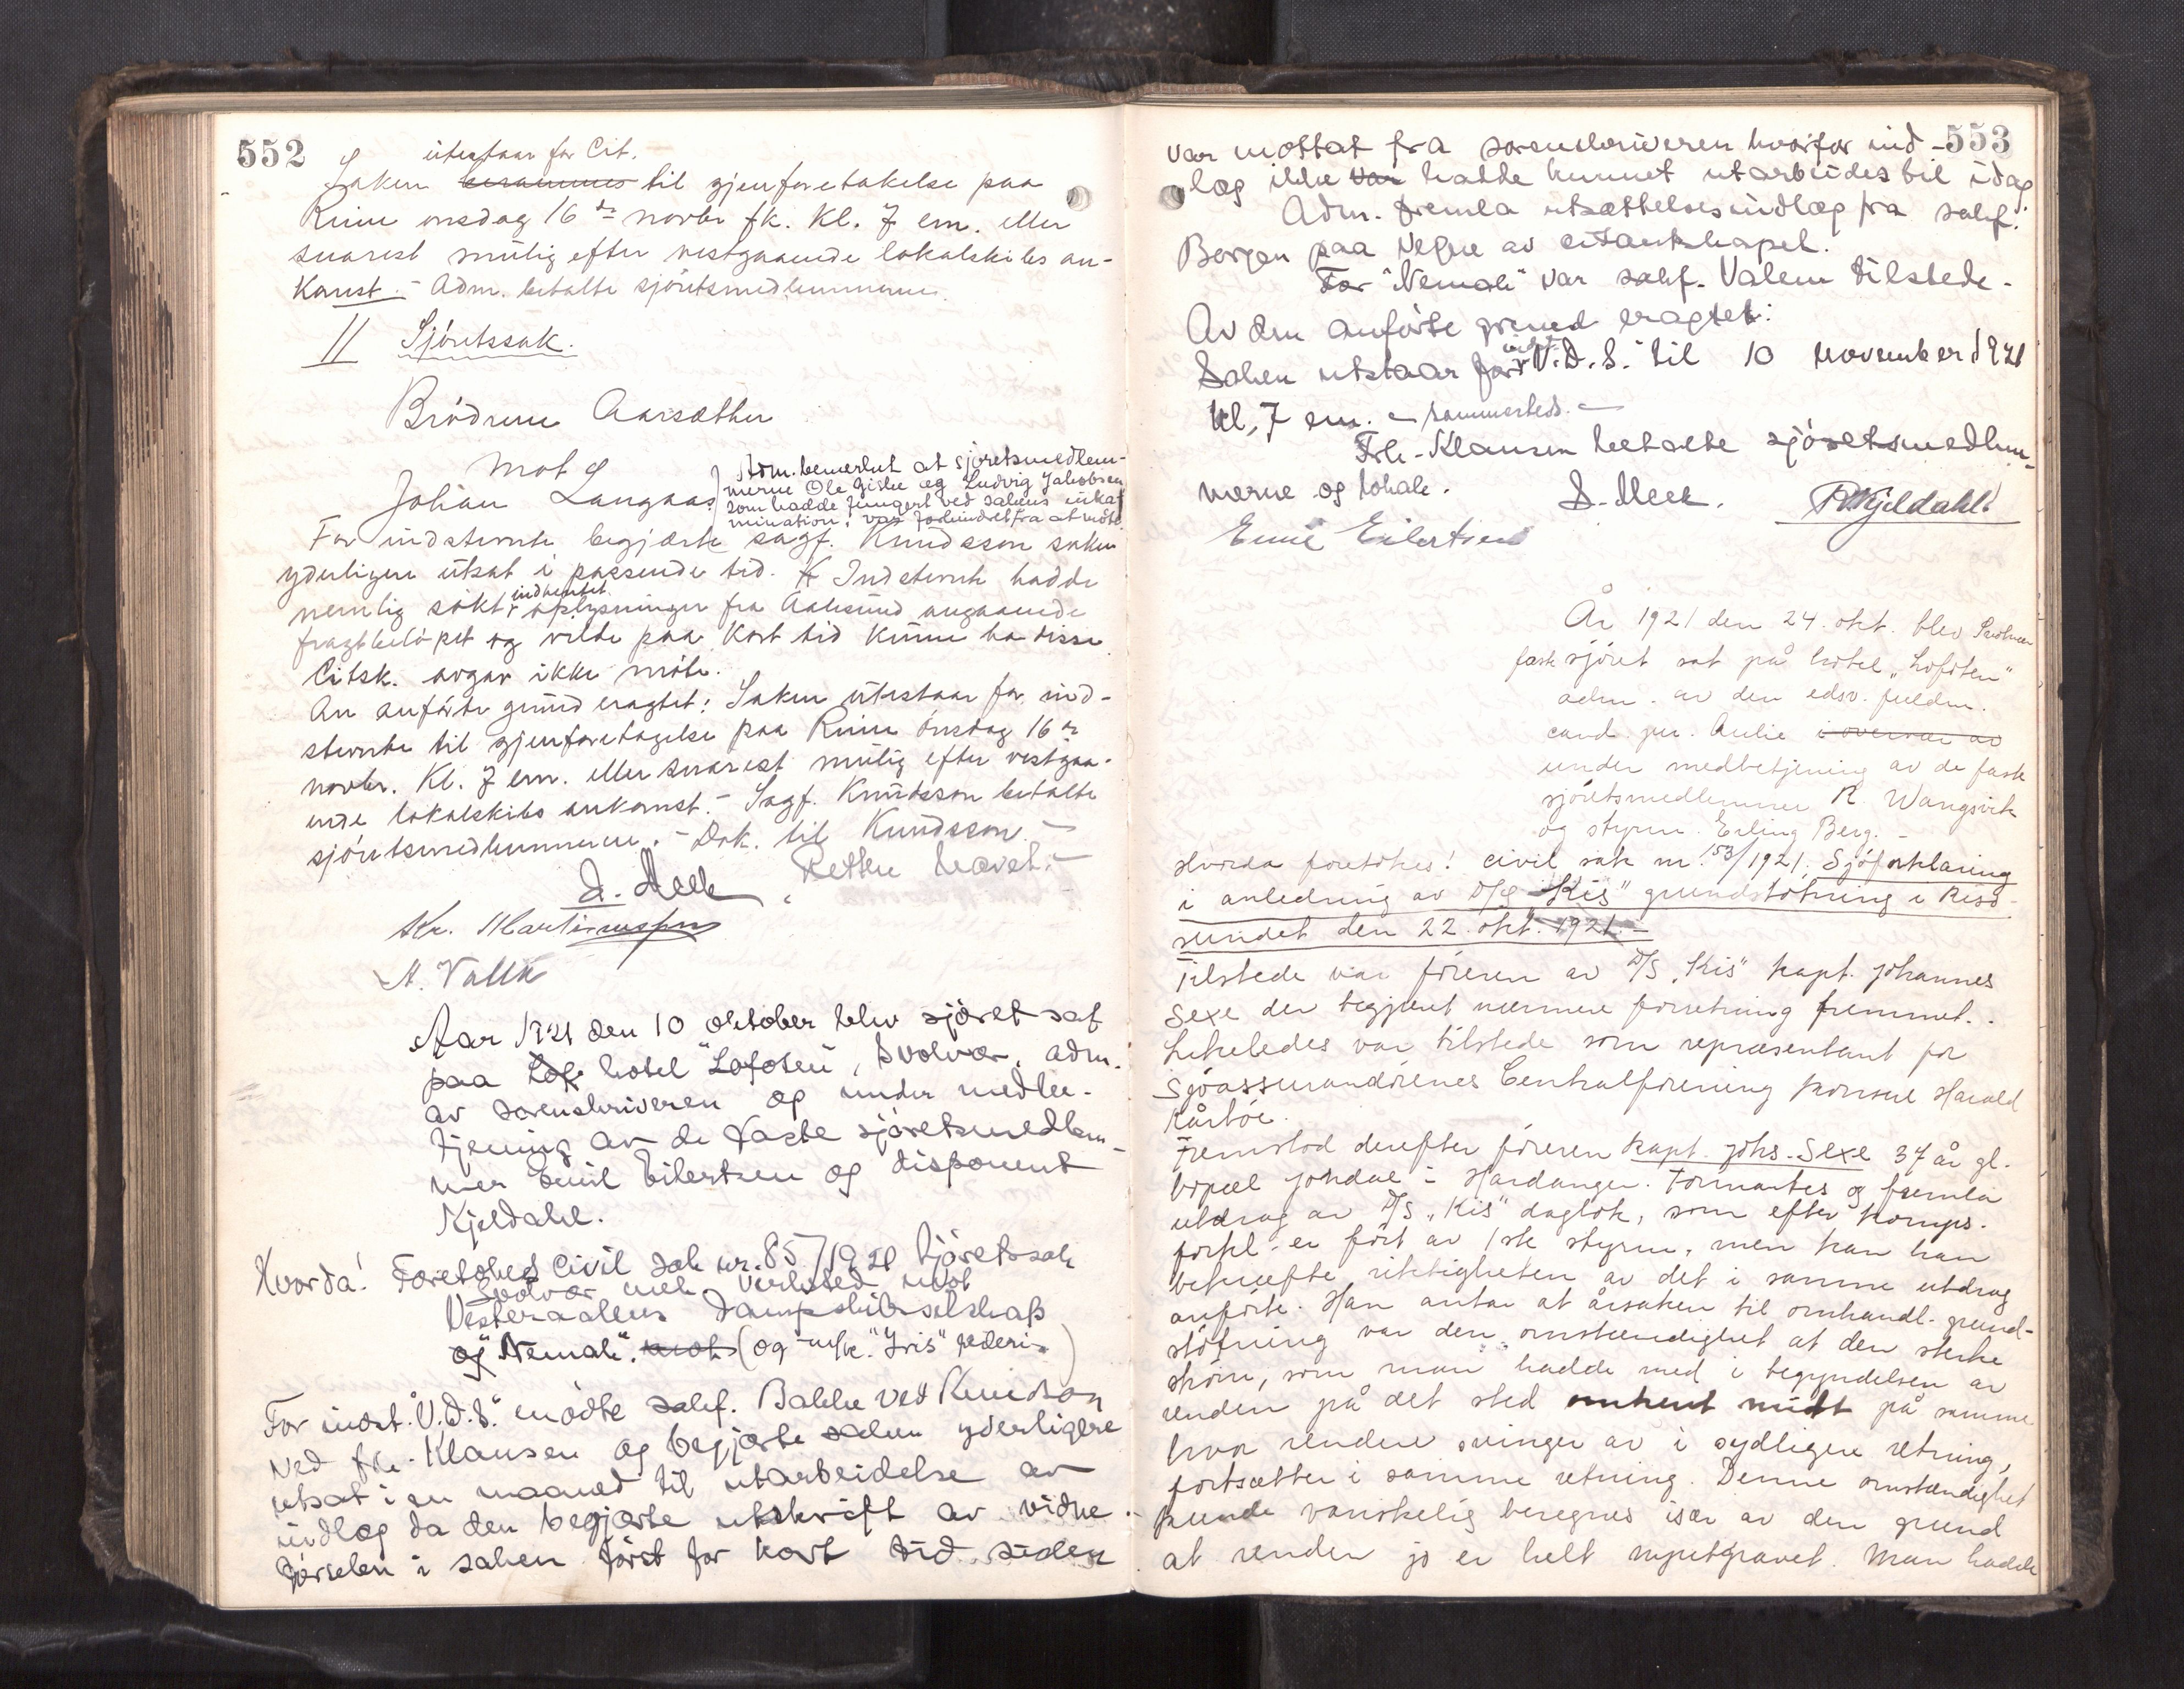 552
utestaar for Cit.
Saken beraammes til gjenforetakelse paa
Risør onsdag 16de novbr fk. Kl. 7 em. eller
snarest mulig efter vestgaaende lokalskibs an-
komst. - Adm. betalte sjöretsmedlemmerne.
11 Sjöretssak.
Brödrene Aarsæther
mot
Johan Langaas
Adm. bemerket at sjøretsmedlem-
merne Ole Giske og Ludvig Jakobsen
som hadde fungert ved sakens
var forhindret fra at møte.
For indstevnte begjærte sagf. Knudsson saken
yderligere utsat i passende tid. Indstevnte hadde
nemlig søkt indhentet oplysninger fra Aalesund angaaende
fragtbeløpet og vilde paa kort tid kunne ha disse.
Citsk. avgav ikke møte.
Av anførte grund eragtet: Saken utestaar for ind-
stevnte til gjenforetagelse paa onsdag 16de
novbr. Kl. 7 em. eller snarest mulig efter vestgaa-
ende lokalskibs ankomst. - Sagf. Knudsson betalte
sjöretsmedlemmerne. - Dok. til Knudsson. -
Retten hævet. -
D. Meek
Kr. Martinussen
A. Valle
Aar 1921 den 10 oktober blev sjøret sat
paa Lofo hotel "Lofoten", Svolvær, adm.
av sorenskriveren og under medbe-
tjening av de faste sjøretsmedlem-
mer Emil Eilertsen og disponent
Kjeldahl.
Hvorda! Foretokes Civil sak nr. 85/1921 Sjøretssak
Svolvær mek. Verksted mot
Vesteraalens Dampskibsselskap
og "Nemak". mot (og m/k. "Iris" rederi)
For indst. "V.D.S." mødte sakf. Bakke ved Knudson
ved frk. Klausen og begjærte saken yderligere
utsat i en maaned til utarbeidelse av
indlæg da den begjærte utskrift av vidne-
førselen i saken først for kort tid siden
553
var mottat fra sorenskriveren hvorfor ind-
læg ikke var hadde kunnet utarbeides til idag.
Adm. fremla utsættelsesindlæg fra sakf.
Borgen paa vegne av citantskapet.
For "Nemak" var sakf. Valem tilstede.
Av den anførte grund eragtet:
Saken utstaar for indst. "V.D.S." til 10 november 1921
kl. 7 em. - sammesteds. -
Frk. Klausen betalte sjøretsmedlem-
merne og lokale.
D. Meek. R Kjeldahl
Emil Eilertsen
År 1921 den 24. okt. blev Svolvær
faste sjöret sat på hotel "Lofoten"
adm. av den edsv. fuldm.
cand. jur. Aulie i overvær av
under medbetjening av de faste
sjöretsmedlemmer R. Wangsvik
og styrm. Erling Berg. -
Hvorda foretokes! civil sak nr. 153/1921, Sjöforklaring
i anledning av D/S "Kis" grundstötning i Risö-
sundet den 22. okt. 1921. -
Tilstede var föreren av D/S "Kis" kapt. Johannes
Sexe der begjært nærmere forretning fremmet.
Likeledes var tilstede som repræsentant for
Sjöassurandörenes Centralforening konsul Harald
Kårböe.
Fremstod derefter föreren kapt. Johs. Sexe 37 år gl.
bopæl Jondal i Hardanger. Formantes og fremla
utdrag av D/S "Kis" dagbok, som efter komps.
forkl. er fört av 1ste styrm., men kan han
bekræfte riktigheten av det i samme utdrag
anförte. Han antar at årsaken til omhandl. grund-
stötning var den omstændighet at den sterke
ström, som man hadde med i begyndelsen av
renden på det sted omtrent midt på samme
hvor renden svinger av i sydligere retning,
fortsætter i samme retning. Denne omstændighet
kunde vanskelig beregnes især av den grund
at renden jo er helt nyutgravet. Man hadde